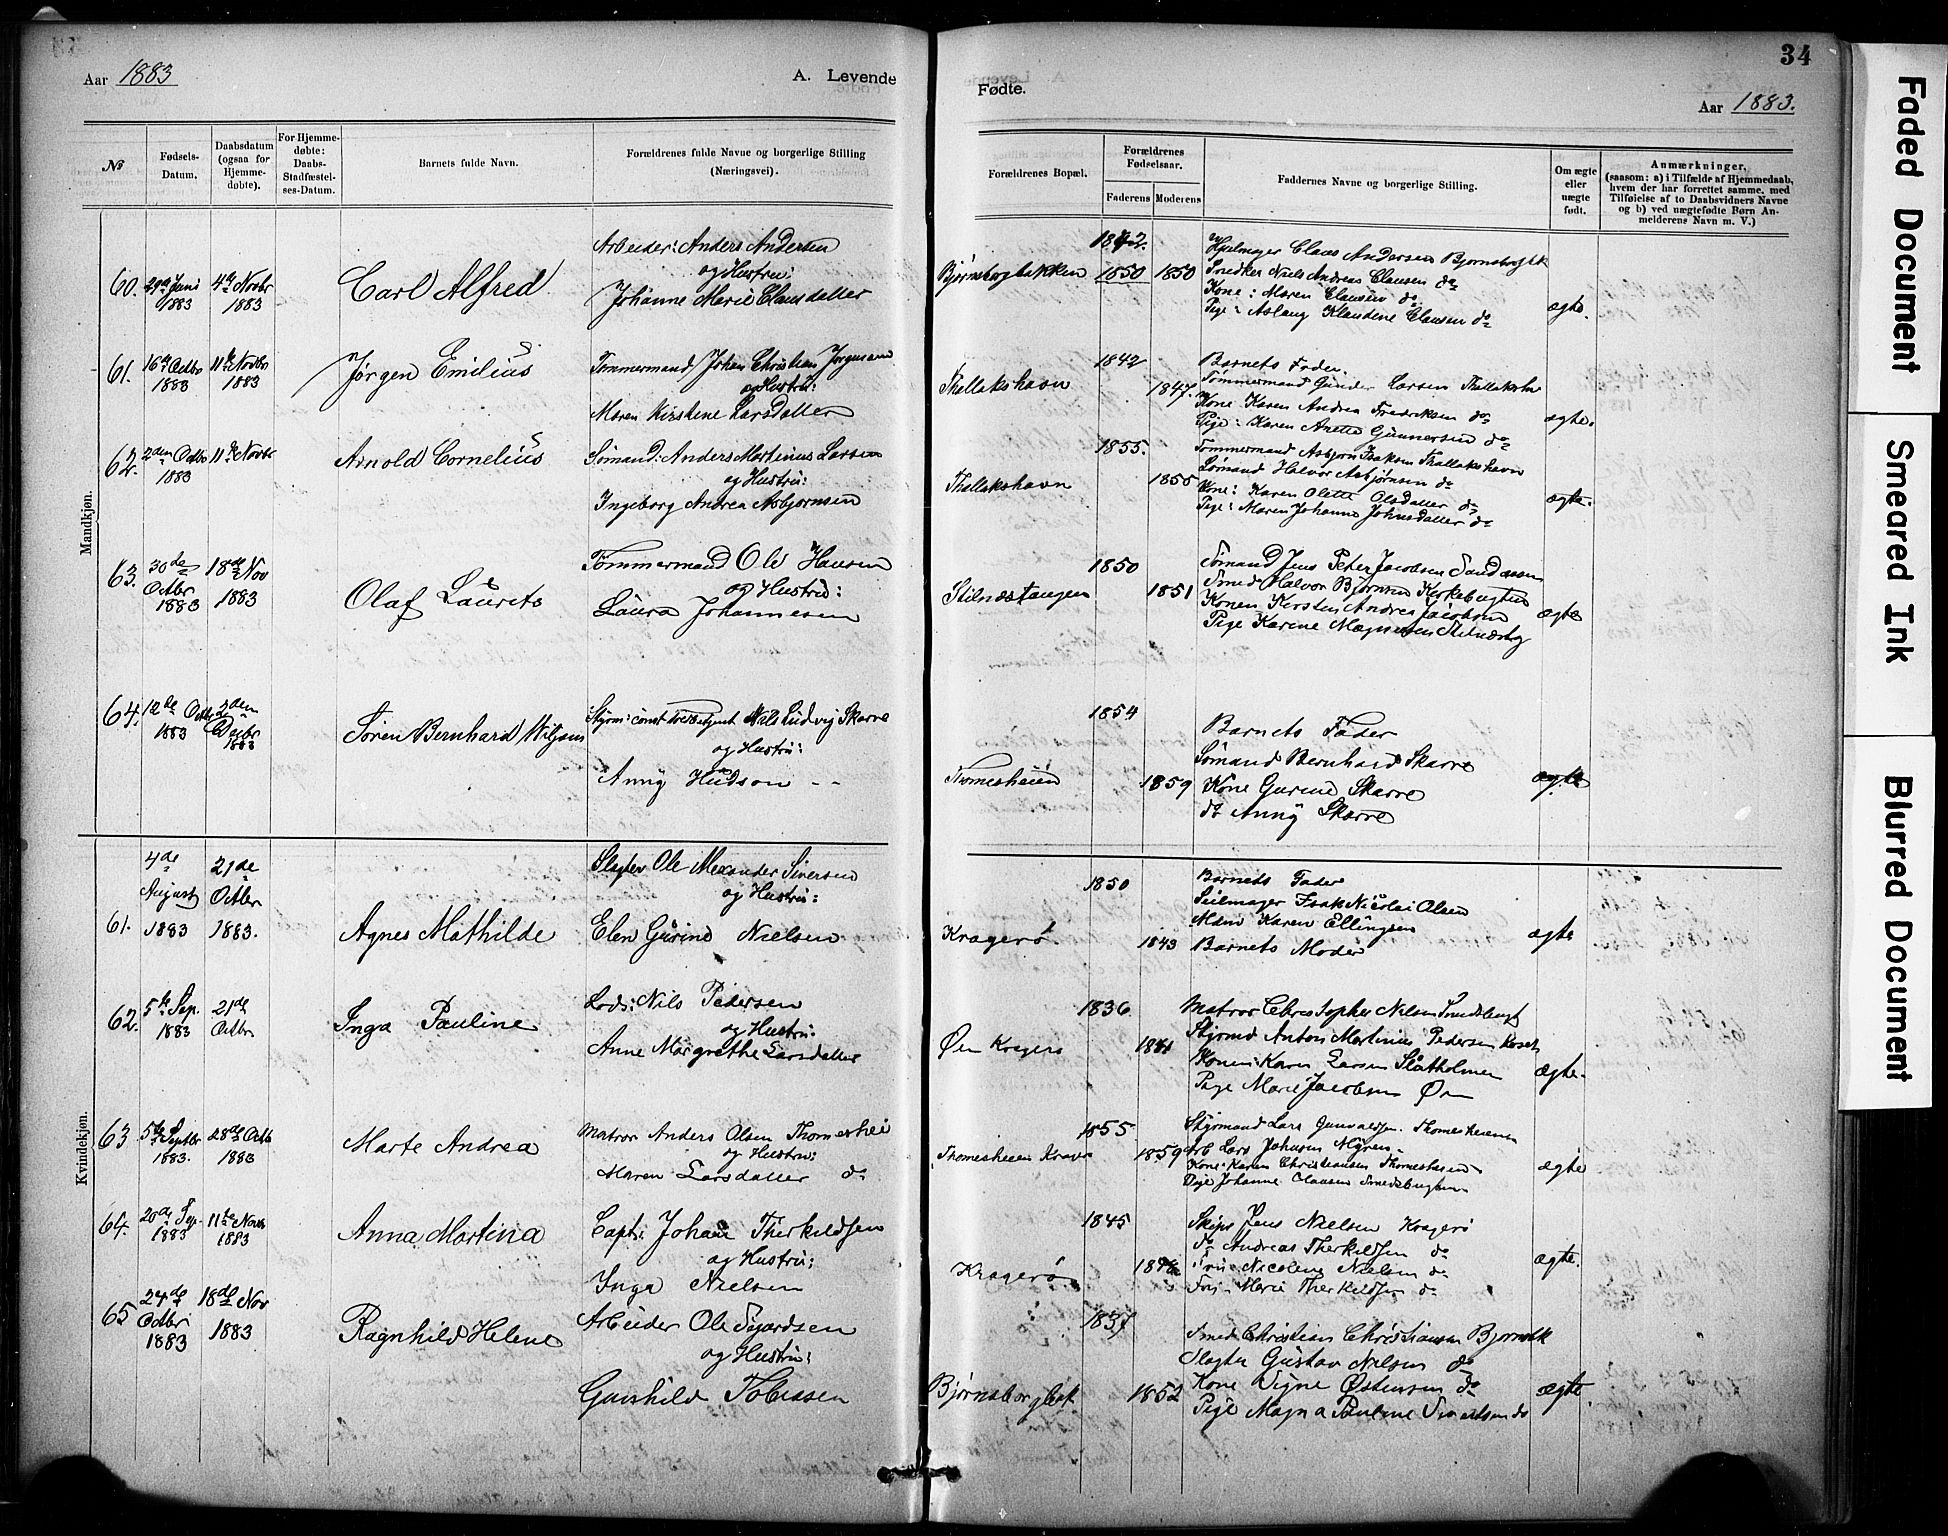 34
Aar 1883
A. Levende
Fødte.
Aar 1883.
No
Fødsels-Datum.
Daabsdatum (ogsaa for Hjemme-døbte).
For Hjemme-døbte: Daabs-Stadfæstel-ses-Datum.
Barnets fulde Navn.
Forældrenes fulde Navne og borgerlige Stilling (Næringsvei).
Forældrenes Bopæl.
Forældrenes Fødselsaar.
Faderens
Moderens
Faddernes Navne og borgerlige Stilling.
Om ægte eller uægte født.
Anmærkninger,
(saasom: a) i Tilfælde af Hjemmedaab,
hvem der har forrettet samme, med
Tilføielse af to Daabsvidners Navne
og b) ved uægtefødte Børn An-
melderens Navn m. V.)
Mandkjøn.
60. 29de Juni 1883
4de Novbr 1883
Carl Alfred
Arbeider: Anders Andersen
og Hustru:
Johanne Marie Clausdatter
Bjørnsborgbakken
1850 1850
Hjulmager Claus Andersen
Snedker Niels Andreas Clausen do
Kone: Maren Clausen do
Pige: Aslaug Klaudine Clausen do
ægte.
61. 16de Octbr 1883
11te Novbr 1883
Jørgen Emilius
Tømmermand Johan Christian Jørgensen
og Hustru:
Maren Kirstene Larsdatter
Thallakshavn
1842
1847.
Barnets Fader.
Tømmermand Gunder Larsen
Kone Karen Andrea Fredriksen do
Pige: Karen Anette Gunnersen do
ægte.
62. 2den Octbr 1883
11te Novbr
Arnold Cornelius
Sømand: Anders Martinus Larsen
og Hustru:
Ingeborg Andrea Asbjørnsen
Thallakshavn
1855.
1855
Tømmermand Asbjørn Isaksen Thallakshavn
Sømand Halvor Asbjørnsen do
Kone: Karen Olette Olsdatter do
Pige: Maren Johanne Johnsdatter do
ægte.
63. 30de Octbr 1883
18de Nov 1883
Olaf Laurits
Tømmermand Ole Hansen
og Hustru:
Laura Johannesen
Stilnæstangen
1850
1851
Sømand Jens Peter Jacobsen
Smed Halvor Bjørnsen Kirkebugten
Konen Kirsten Andrea Jacobsen
Pige Karine Magnusen
ægte
64. 12te Octbr 1883
2den Decbr 1883
Søren Bernhard
Nils Ludvig Skarre
og Hustru:
Anny Hudson
Thomesheien
1854
1859
Barnets Fader
Sømand Bernhard Skarre
Kone Gurine Skarre
do Anny Skarre
ægte
Kvindekjøn.
61. 4de August 1883
21de Octbr 1883.
Agnes Mathilde
Slagter Ole Alexander Siversen
og Hustru:
Elen Gurine Nielsen
Kragerø.
1850
1843
Barnets Fader
Seilmager Isak Nicolai Olsen
Mdm Karen Ellingsen
Barnets Moder
ægte
62. 5te Sep. 1883
21de Octbr
Inga Pauline
Lods: Nils Pedersen
og Hustru:
Anne Margrethe Larsdatter
Øen Kragerø
1836
1841
Matros Christopher Nilsen Smedsbugt
Styrmd Anton Martinius Pedersen
Konen: Karen Larsen Slåtholmen
Pige Marie Jacobsen Øen
ægte.
63 5te Septbr 1883.
28de Octb 1883
Marte Andrea
Matros Anders Olsen Thomeshei
og Hustru:
Maren Larsdatter do
Thomesheien Kragerø
1855
1859
Styrmand Lars Gunvaldsen. Thomesheien
Arb Lars Johnsen Myren.
Kone: Karen Christiansen Thomesheien
Pige Johanne Clausen Smedsbugten
ægte
64. 20de Sep. 1883
11te Novb 1883
Anna Martina
Capt: Johan Therkildsen
og Hustru:
Inga Nielsen
Kragerø
1845
Skips Jens Nielsen Kragerø
do Andreas Therkildsen do
Fru Nicoline Nielsen do
Fru Marie Therkildsen do
ægte.
65 24de Octbr 1883
18de Nov 1883
Ragnhild Helene
Arbeider Ole Sjordsen
og Hustru:
Gunhild Tobiasen
Bjørnsborgbak
1837
1852
Smed Christian Christiansen
Slagter Gustav Nilsen do
Kone Signe Østensen do
Pige Magna Pauline
ægte
Faded Document
Smeared Ink
Blurred Document